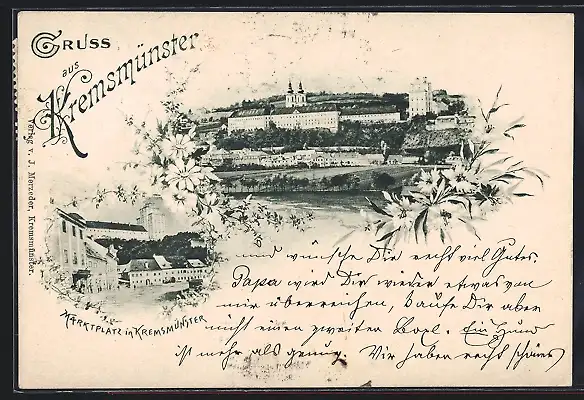 Gruss
aus
Kremsmünster
Verlag v. J. Merzeder, Kremsmünster.
Marktplatz in Kremsmünster
und wünsche Dir recht viel Gutes.
Papa wird Dir wieder etwas von
mir überreichen, kaufe Dir aber
nicht einen zweiten. Ein Hund
ist mehr als genug. Wir haben recht schönes